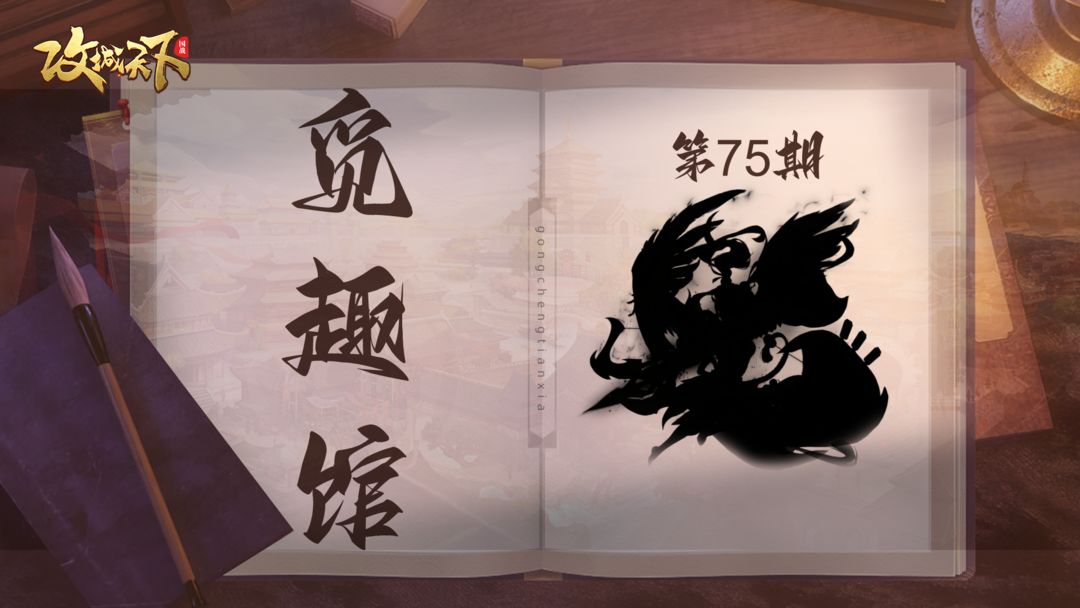 攻城天下
国战
觅趣馆
gongchengtianxia
第75期